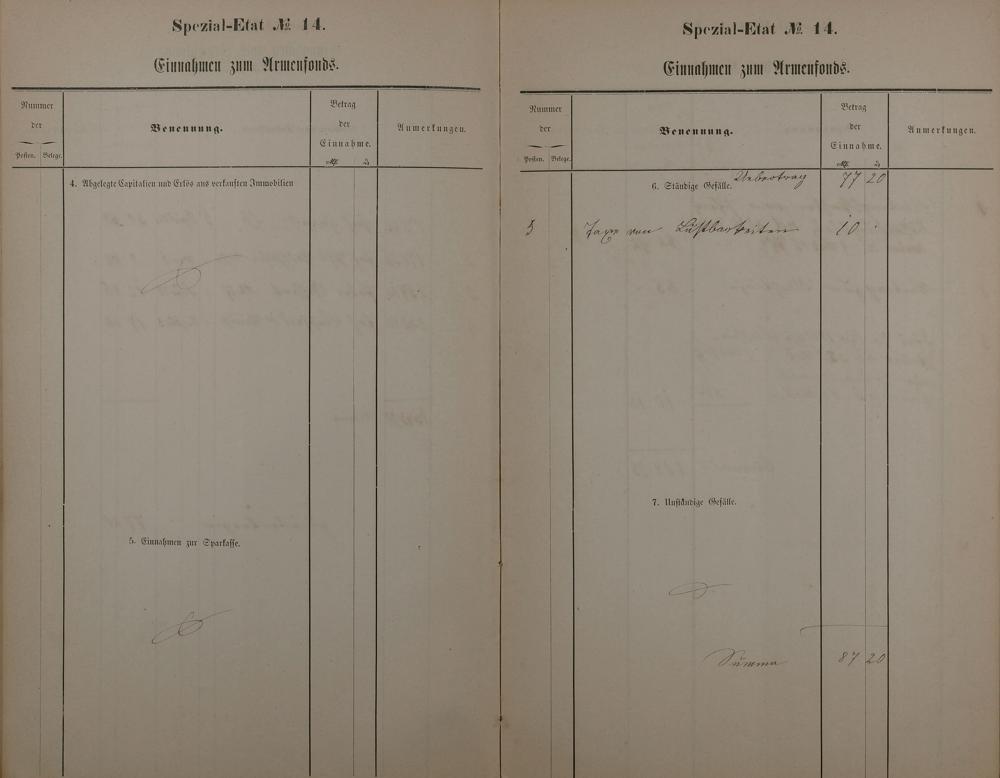 Spezial-Etat № 14.
Einnahmen zum Armenfonds.
Nummer
der
Posten. Belege.
Benennung.
Betrag
der
Einnahme.
ℳ ₰
Anmerkungen.
4. Abgelegte Capitalien und Erlös aus verkauften Immobilien
5. Einnahmen zur Sparkasse.
Spezial-Etat № 14.
Einnahmen zum Armenfonds.
Nummer
der
Posten. Belege.
Benennung.
Betrag
der
Einnahme.
ℳ ₰
Anmerkungen.
Uebertrag 77 20
6. Ständige Gefälle.
von Lustbarkeiten 10 .
7. Unständige Gefälle.
Summa 87 20